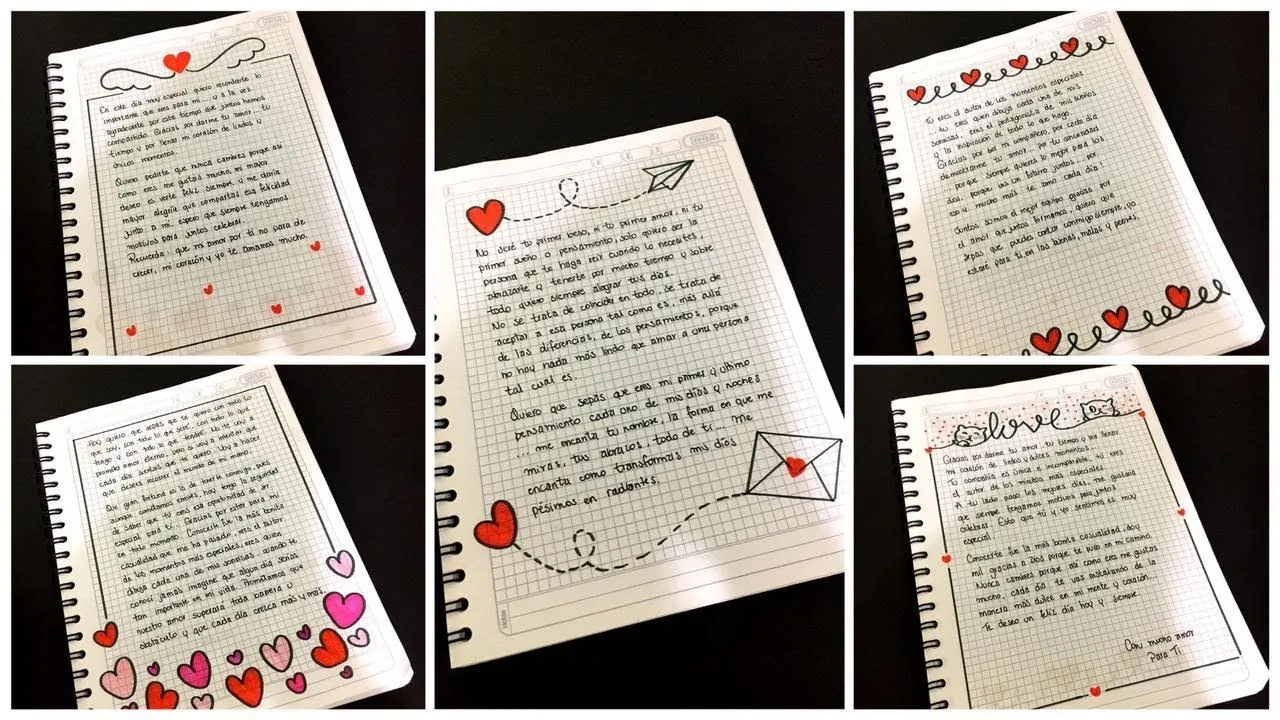 En este día muy especial quiero recordarte lo
importante que eres para mi... y a la vez
agradecerte por este tiempo que juntos hemos
compartido. Gracias por darme tu amor... tu
tiempo y por llenar mi corazón de lindos y
únicos momentos.
Quiero pedirte que nunca cambies porque así
como eres me gustas mucho, mi mayor
deseo es verte feliz siempre, y me daría
mayor alegría que compartas esa felicidad
junto a mi, espero que siempre tengamos
motivos para juntos celebrar.
Recuerda: que mi amor por ti no para de
crecer, mi corazón y yo te amamos mucho.
No seré tu primer beso, ni tu primer amor, ni tu
primer sueño o pensamiento, solo quiero ser la
persona que te haga reír cuando lo necesites,
abrazarte y tenerte por mucho tiempo y sobre
todo quiero siempre alegrar tus días.
No se trata de coincidir en todo, se trata de
aceptar a esa persona tal como es, más allá
de las diferencias, de los pensamientos, porque
no hay nada más lindo que amar a una persona
tal cual es.
Quiero que sepas que eres mi primer y último
pensamiento cada uno de mis días y noches
... me encanta tu nombre, la forma en que me
miras, tus abrazos, todo de ti... Me
encanta como transformas mis días
pésimos en radiantes.
Tu eres el autor de los momentos especiales
... tu eres quien dibuja cada una de mis
sonrisas, eres el protagonista de mis sueños
y la inspiración de todo lo que hago...
Gracias por ser mi compañero, por cada día
demostrarme tu amor... por tu sinceridad
... porque siempre quieres lo mejor para los
dos, porque ves un futuro juntos... por
eso y mucho más te amo cada día!
Juntos somos el mejor equipo gracias por
el amor que juntos formamos, quiero que
sepas que puedes contar conmigo siempre, yo
estaré para ti, en las buenas, malas y peores.
Hoy quiero que sepas que te quiero con todo lo
que soy, con todo lo que seré... con todo lo que
tengo y con todo lo que tendré. No te voy a
prometer amor eterno, pero si voy a intentar que
cada día sientas que te quiero. Voy a hacer
que desees recorrer el mundo de mi mano.
Que gran fortuna es la de tenerte conmigo, pues
aunque cometamos errores, hoy tengo la seguridad
de saber que tú eres esa oportunidad de ser
especial para ti... Gracias por estar para mi
en todo momento. Conocerte fue la más bonita
casualidad que me ha pasado, eres el autor
de los momentos más especiales, eres quien
dibuja cada una de mis sonrisas, cuando te
conocí jamás imagine que algún día serías
tan importante en mi vida. Prometamos que
nuestro amor superará toda barrera u
obstáculo y que cada día crezca más y más.
love
Gracias por darme tu amor, tu tiempo y por llenar
mi corazón de lindos y dulces momentos...
Tu compañía es única e incomparable, tu eres
el autor de los minutos más especiales.
A tu lado paso los mejores días, me gustaría
que siempre tengamos motivos para juntos
celebrar. Esto que tú y yo sentimos es muy
especial.
Conocerte fue la más bonita casualidad, doy
mil gracias a Dios porque te puso en mi camino.
Nunca cambies porque así como eres me gustas
mucho, cada día te vas instalando de la
manera más dulce en mi mente y corazón...
Te deseo un feliz día hoy y siempre.
Con mucho amor
Para Ti